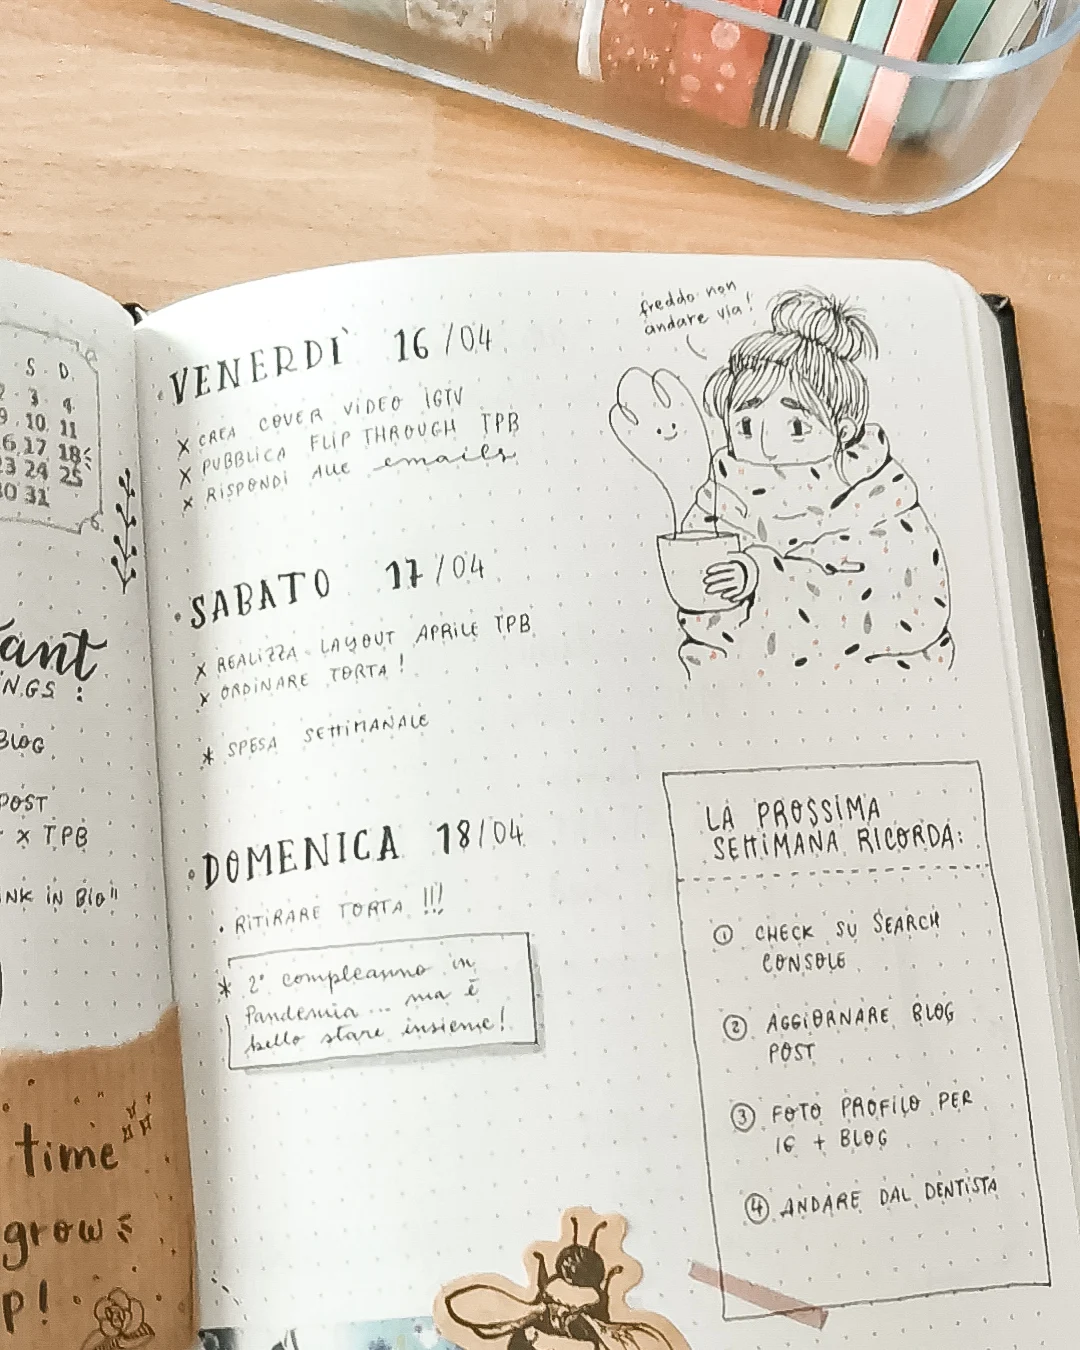 S. D.
2 3 4
9 10 11
16 17 18
23 24 25
30 31
ant
NGS:
BLOG
POST
x TPB
NK iN Bio"
time
grow
p!
VENERDÌ 16/04
x CREA COVER ViDEO IGTV
x PUBBLICA FLIP THROUGH TPB
x RISPONDi ALLE emails
SABATO 17/04
x REALiZZA LAYOUT APRiLE TPB
x ORDiNARE TORTA!
* SPESA SETTiMANALE
DOMENICA 18/04
• RiTiRARE TORTA !!!
* 2° compleanno in
Pandemia... ma è
bello stare insieme!
freddo non
andare via!
LA PROSSIMA
SETTiMANA RICORDA:
① CHECK SU SEARCH
CONSOLE
② AGGiORNARE BLOG
POST
③ FOTO PROFiLO PER
IG + BLOG
④ ANDARE DAL DENTiSTA